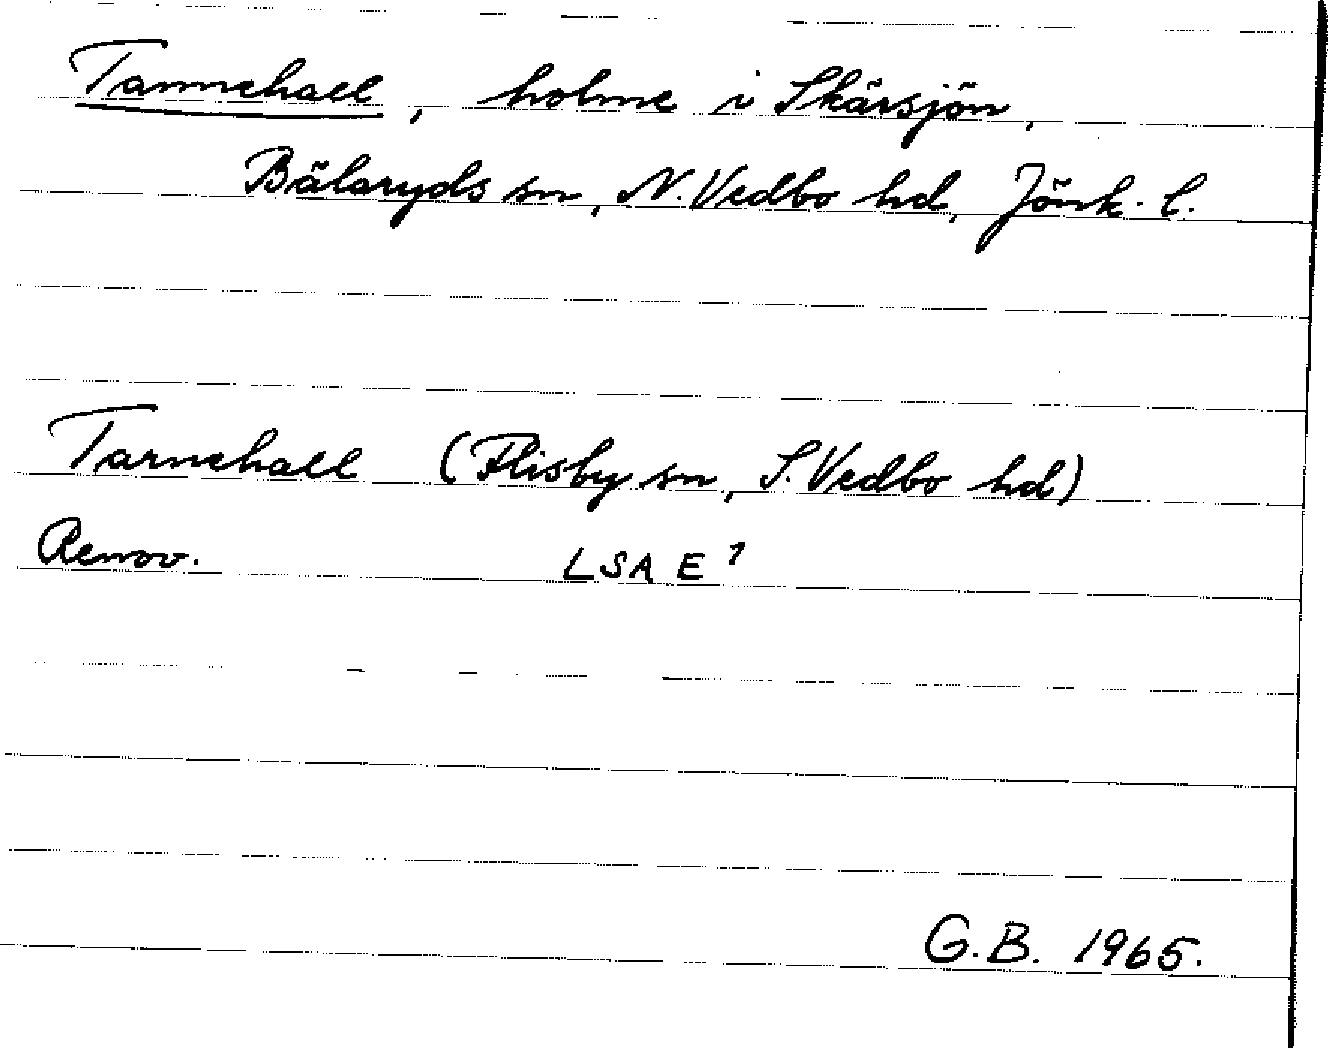 Tannehall, holme i Skärsjön,
Bälaryds sn, N. Vedbo hd, Jönk. l.
Tarnehall (Flisby sn, S. Vedbo hd)
Renov. LSA E 7
G.B. 1965.